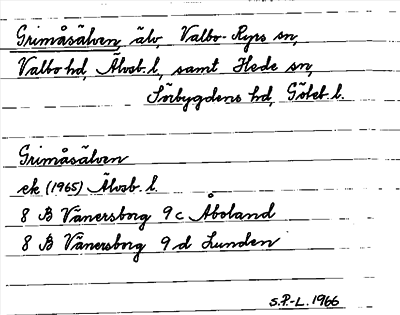 Grimåsälven, älv, Valbo-Ryrs sn,
Valbo hd, Älvsb. l., samt Hede sn,
Sörbygdens hd, Göteb. l.
Grimåsälven
ek (1965) Älvsb. l.
8 B Vänersborg 9 c Åboland
8 B Vänersborg 9 d Lunden
S.P.-L. 1966